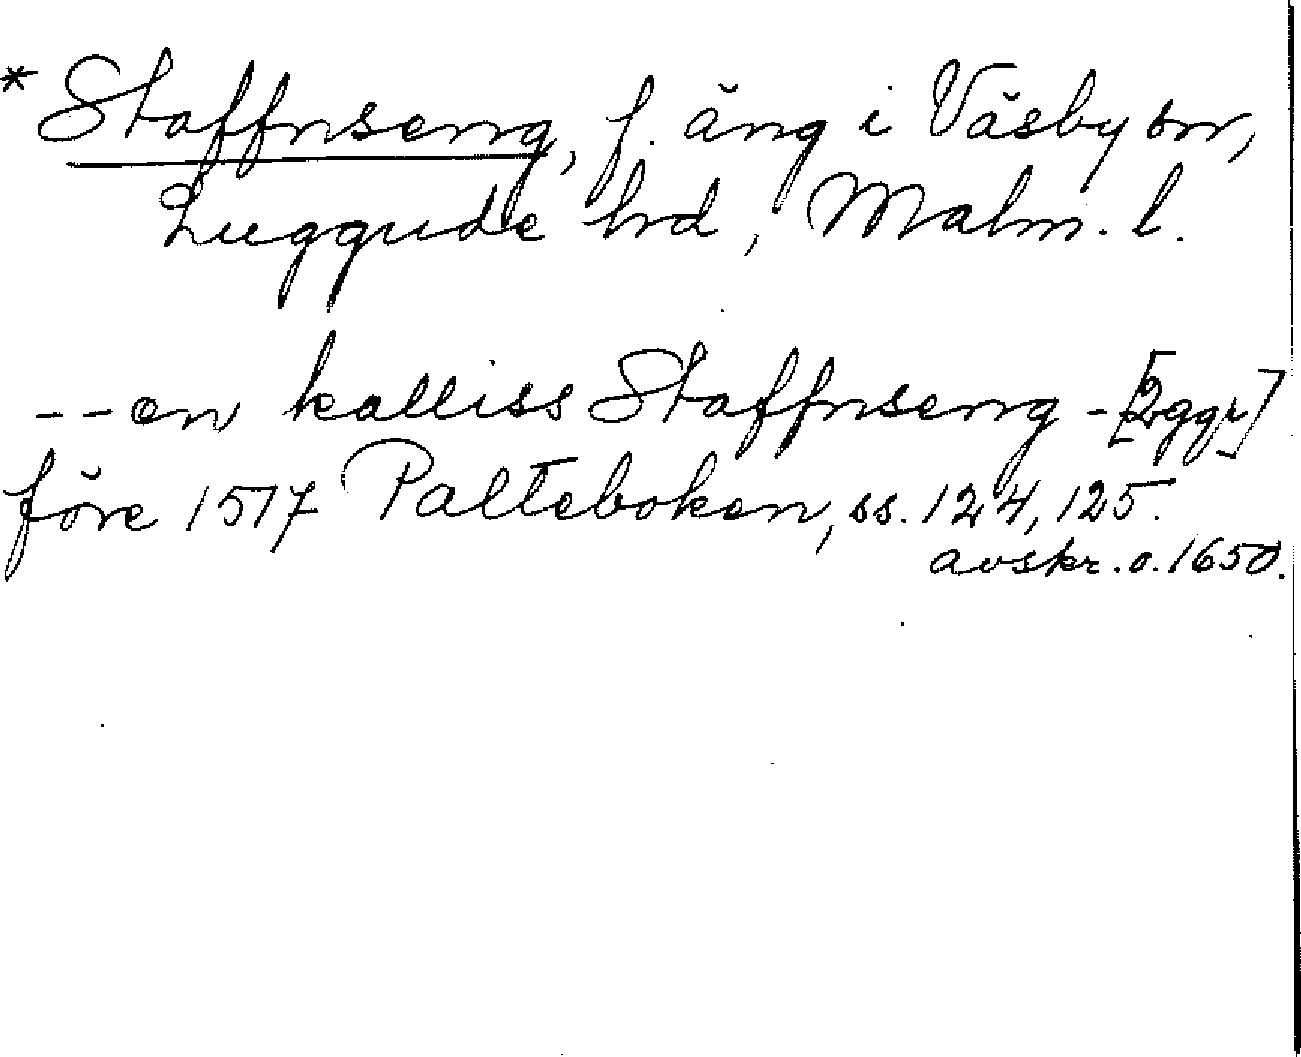 * Staffnseng, f. äng i Väsby sn,
Luggude hrd, Malm. l.
-- en kalliss Staffnseng - [2 ggr]
före 1517 Palteboken, ss. 124, 125.
avskr. o. 1650.